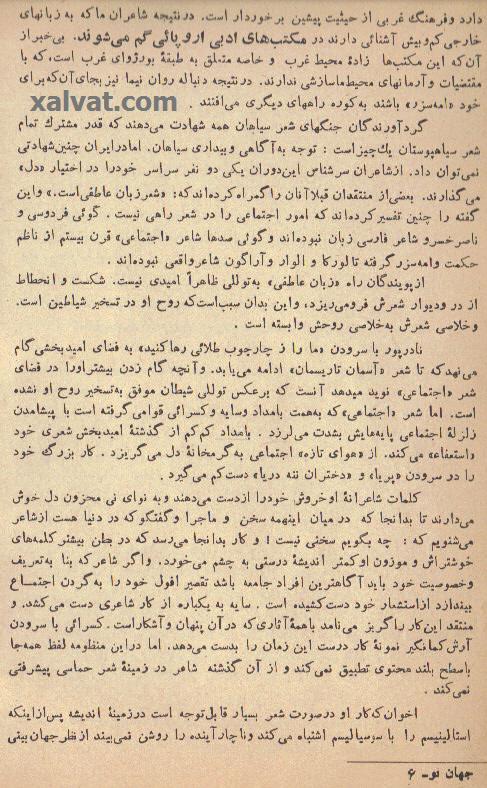 دارد وفرهنگ غربی از حیثیت پیشین برخوردار است. درنتیجه شاعران ما که به زبانهای
خارجی کم‌وبیش آشنائی دارند در مکتب‌های ادبی اروپائی گم می‌شوند. بی‌خبر از
آن‌که این مکتب‌ها زادهٔ محیط غرب و خاصه متعلق به طبقهٔ بورژوای غرب است، که با
مقتضیات و آرمانهای محیط ما سازشی ندارند. درنتیجه دنباله روان نیما نیز بجای آن‌که برای
خود «امه‌سزر» باشند به‌کوره راههای دیگری می‌افتند .
xalvat.com
گردآورندگان جنگهای شعر سیاهان همه شهادت می‌دهند که قدر مشترك تمام
شعر سیاهپوستان یك‌چیز است : توجه به‌آگاهی و بیداری سیاهان. اما در ایران چنین شهادتی
نمی‌توان داد. از شاعران سرشناس این‌دوران یکی دو نفر سراسر خودرا در اختیار «دل»
می‌گذارند. بعضی‌از منتقدان قبلا آنان را گمراه کرده‌اند که: «شعر زبان عاطفی‌است.» و این
گفته را چنین تفسیر کرده‌اند که امور اجتماعی را در شعر راهی نیست . گوئی فردوسی و
ناصر خسرو شاعر فارسی زبان نبوده‌اند و گوئی صدها شاعر «اجتماعی» قرن بیستم از ناظم
حکمت و امه‌سزر گرفته تا لورکا و الوار و آراگون شاعر واقعی نبوده‌اند .
از پویندگان راه «زبان عاطفی» به‌توللی ظاهراً امیدی نیست. شکست و انحطاط
از در و دیوار شعرش فرومی‌ریزد، و این بدان سبب‌است‌که روح او در تسخیر شیاطین است.
وخلاصی شعرش به‌خلاصی روحش وابسته است .
نادرپور با سرودن «ما را ز چارچوب طلائی رها کنید» به فضای امیدبخشی گام
می‌نهد که تا شعر «آسمان تاریسمان» ادامه می‌یابد. و آنچه گام زدن بیشتر اورا در فضای
شعر «اجتماعی» نوید میدهد آنست که برعکس توللی شیطان موفق به‌تسخیر روح او نشده
است. اما شعر «اجتماعی» که به‌همت بامداد وسایه و کسرائی قوام گرفته است با پیشامدن
زلزلهٔ اجتماعی پایه‌هایش بشدت می‌لرزد . بامداد کم‌کم از گذشتهٔ امیدبخش شعری خود
«استعفاء» می‌کند. از «هوای تازه» اجتماعی به‌گرمخانهٔ دل می‌گریزد . کار بزرگ خود
را در سرودن «پریا» و «دختران ننه دریا» دست‌کم می‌گیرد .
کلمات شاعرانهٔ او خروش خودرا ازدست می‌دهند و به نوای نی محزون دل خوش
می‌دارند تا بدانجا که در میان اینهمه سخن و ماجرا و گفتگو که در دنیا هست از شاعر
می‌شنویم که : چه بگویم سخنی نیست ! و کار بدانجا می‌رسد که در بطن بیشتر کلمه‌های
خوشتراش و موزون او کمتر اندیشهٔ درستی به چشم می‌خورد. و اگر شاعر که بنا به‌تعریف
وخصوصیت خود باید آگاهترین افراد جامعه باشد تقصیر افول خود را به‌گردن اجتماع
بیندازد از استشعار خود دست‌کشیده است . سایه به یکباره از کار شاعری دست می‌کشد. و
منتقد این‌کار را گریز می‌نامد با همهٔ آثاری‌که در آن پنهان و آشکار است. کسرائی با سرودن
آرش کمانگیر نمونهٔ کار درست این زمان را بدست می‌دهد. اما دراین منظومه لفظ همه‌جا
باسطح بلند محتوی تطبیق نمی‌کند و از آن گذشته شاعر در زمینهٔ شعر حماسی پیشرفتی
نمی‌کند .
اخوان که کار او درصورت شعر بسیار قابل‌توجه است درزمینهٔ اندیشه پس‌از اینکه
استالینیسم را با سوسیالیسم اشتباه می‌کند وناچار آینده را روشن نمی‌بیند از نظر جهان‌بینی
جهان نو- ۶